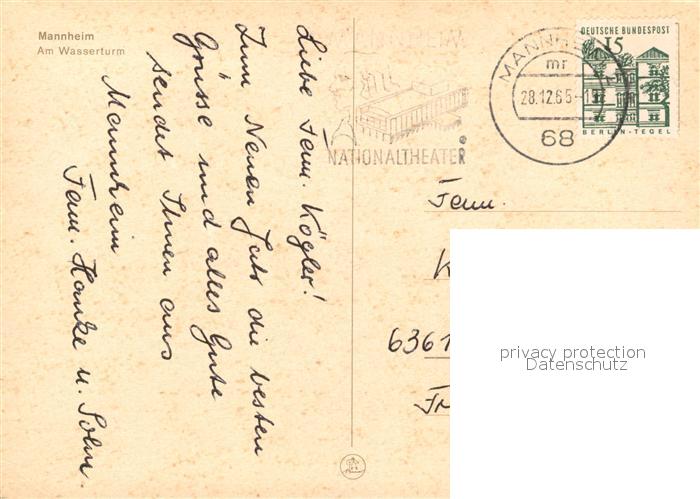 Mannheim
Am Wasserturm
Liebe Fam. Kögler!
Zum Neuen Jahr die besten
Grüsse und alles Gute
sendet Ihnen aus
Mannheim
Fam. Hanke u. Sohn.
NATIONALTHEATER
MANNHEIM
mr
28.12.65-1
68
DEUTSCHE BUNDESPOST
15
BERLIN-TEGEL
Fam.
K
6361
Fr
privacy protection
Datenschutz